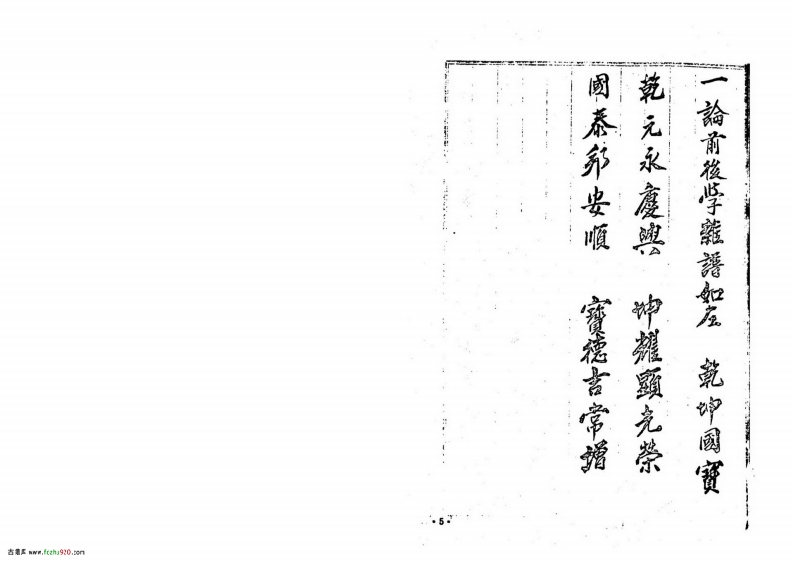 一論前後学雜譜如左　乾坤國寳
乾元永慶興　坤耀顯光榮
國泰邦安順　寳德吉常增
·5·
古籍库 www.fczhu920.com